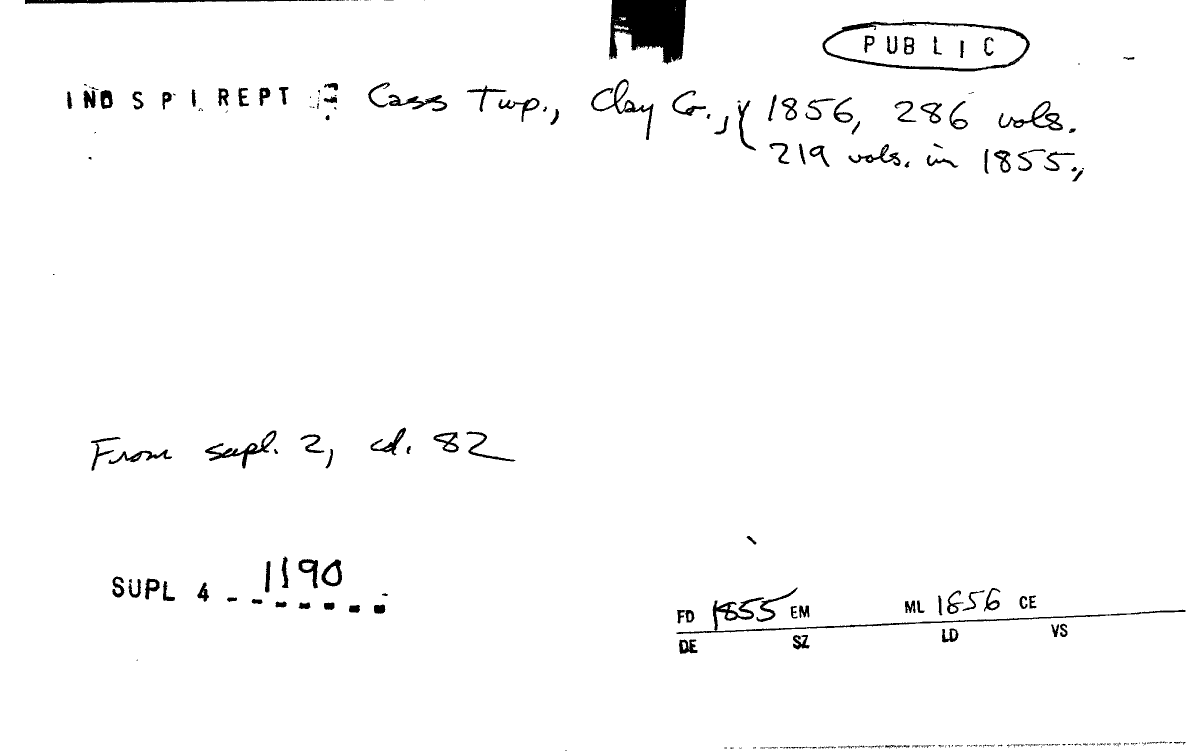 PUBLIC
IND S P I REPT Cass Twp., Clay Co., 1856, 286 vols.
219 vols. in 1855.,
From supl. 2, cd. 82
SUPL 4 - 1190
FD 1855 EM ML 1856 CE
DE SZ LD VS